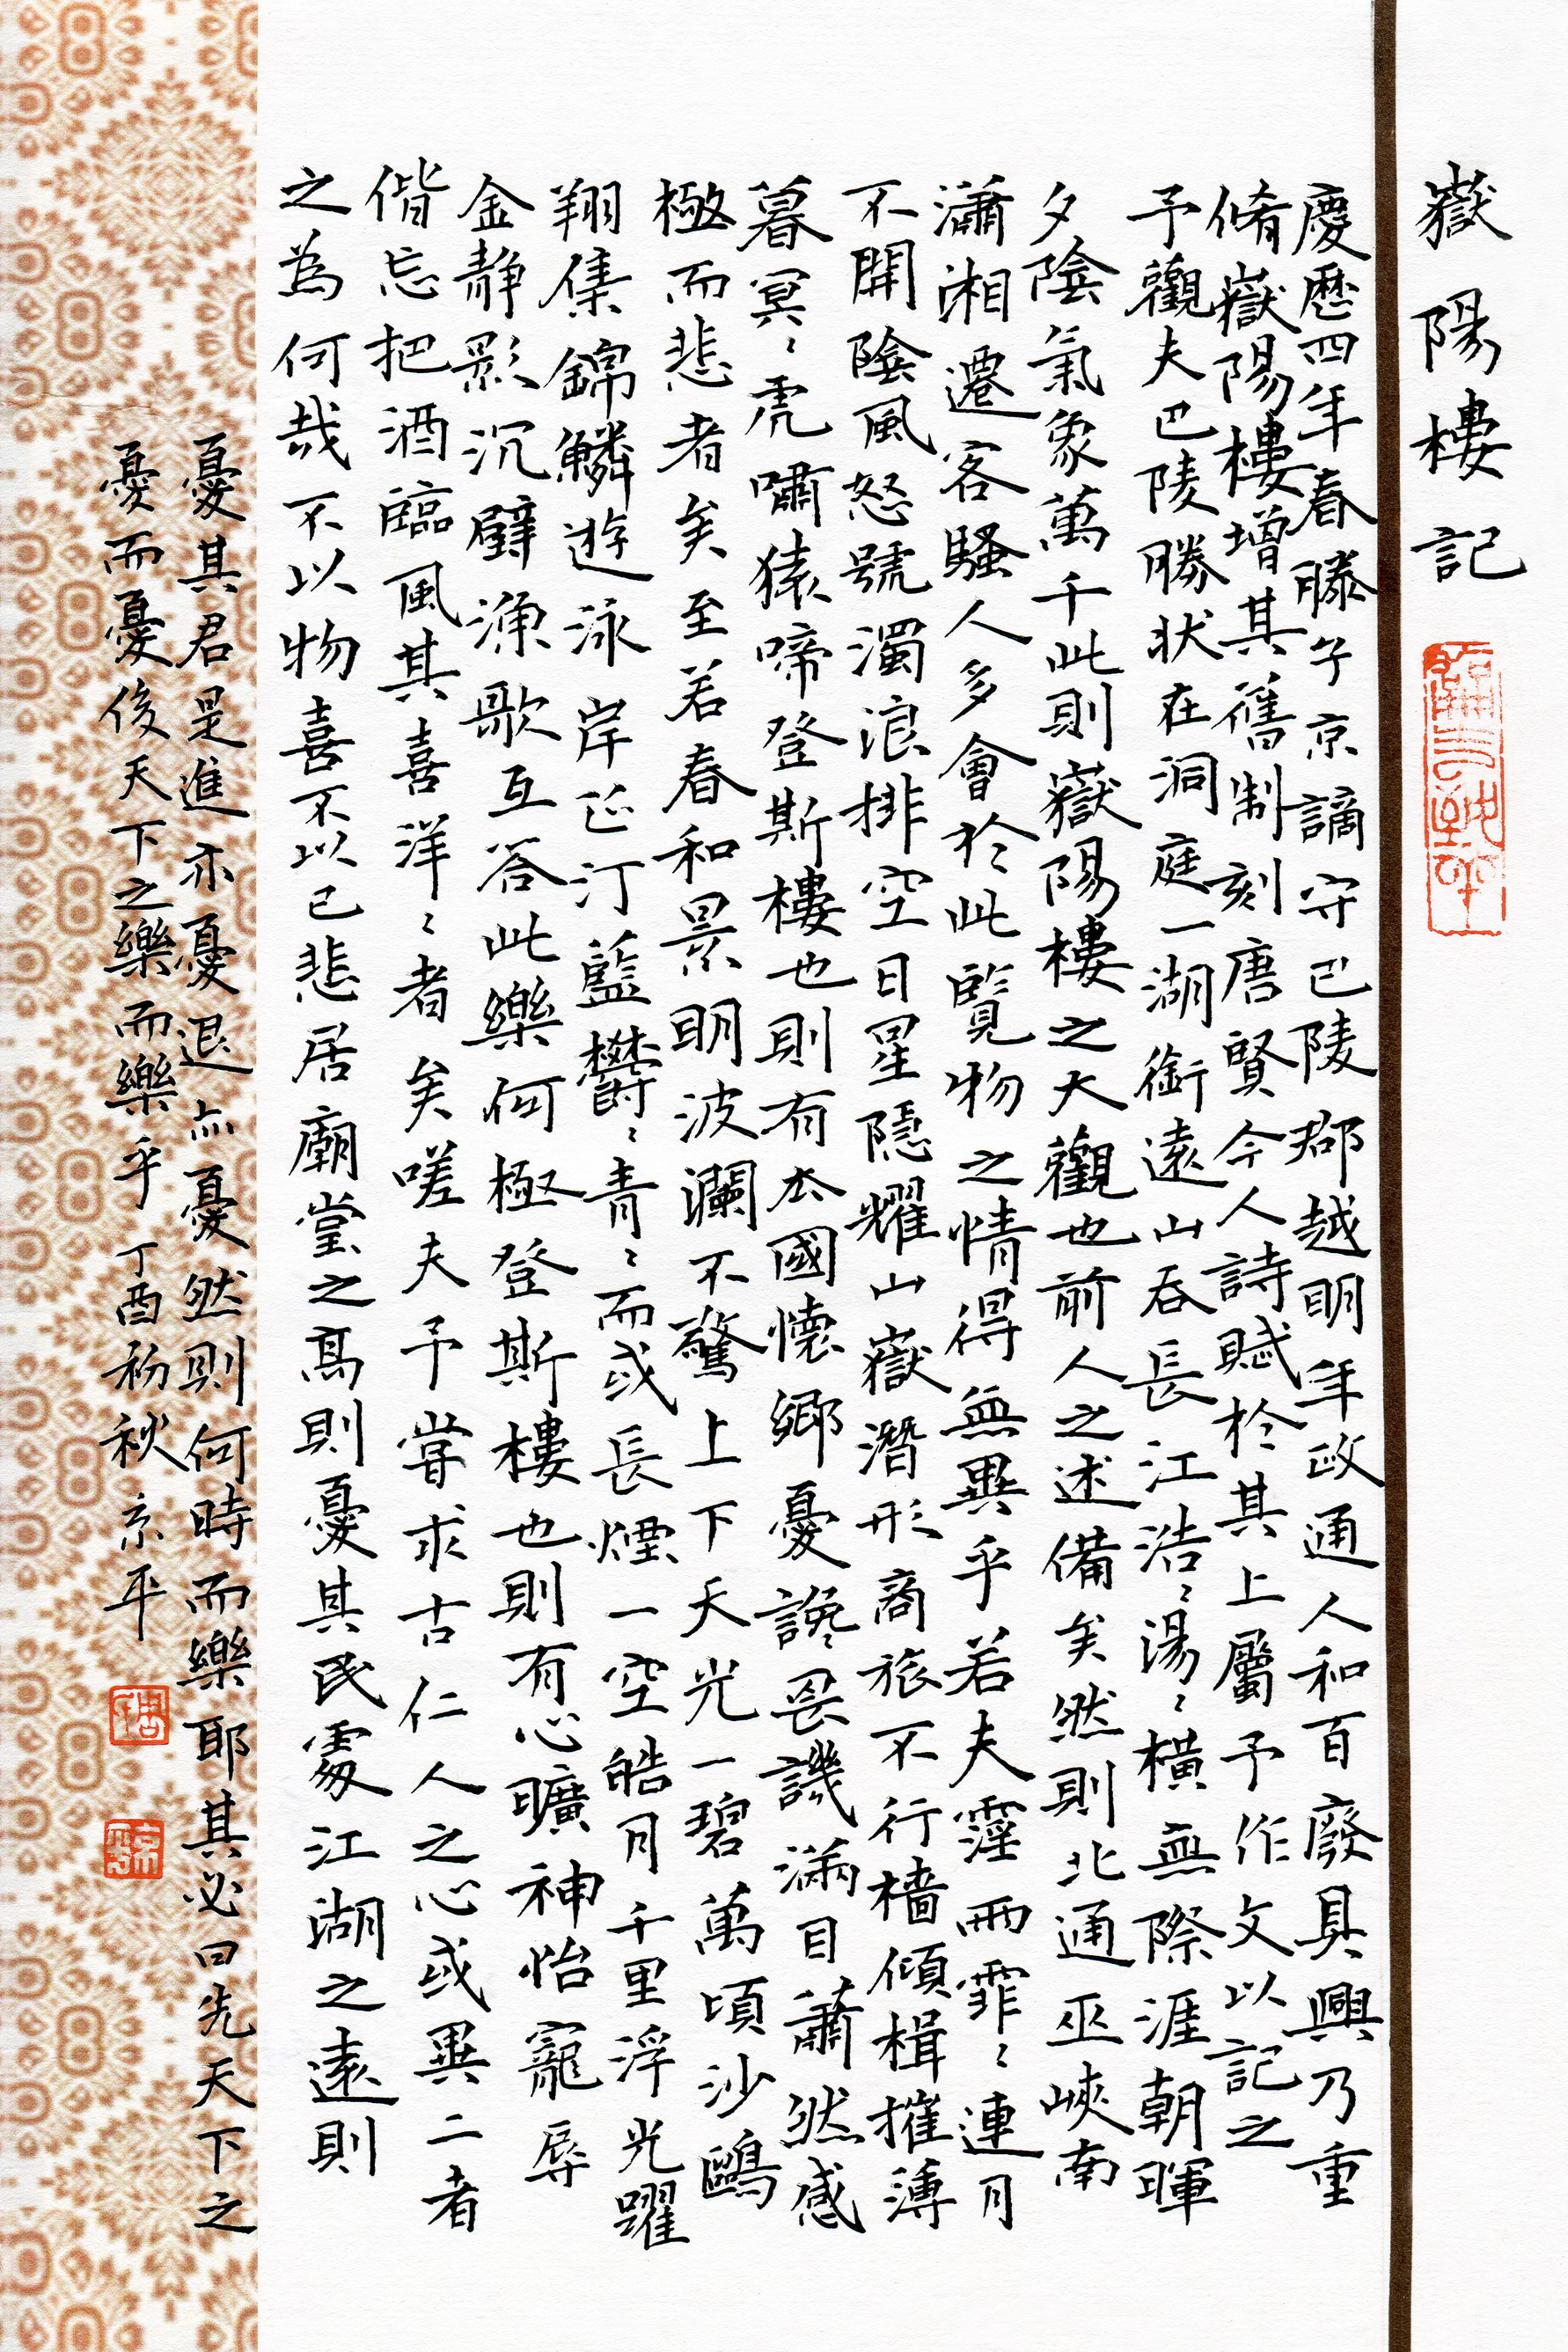 嶽陽樓記
慶歷四年春滕子京謫守巴陵郡越明年政通人和百廢具興乃重
脩嶽陽樓增其舊制刻唐賢今人詩賦於其上屬予作文以記之
予觀夫巴陵勝狀在洞庭一湖銜遠山吞長江浩〻湯〻橫無際涯朝暉
夕陰氣象萬千此則嶽陽樓之大觀也前人之述備矣然則北通巫峽南
瀟湘遷客騷人多會於此覽物之情得無異乎若夫霪雨霏〻連月
不開陰風怒號濁浪排空日星隱耀山嶽潛形商旅不行檣傾楫摧薄
暮冥〻虎嘯猿啼登斯樓也則有去國懷鄉憂讒畏譏滿目蕭然感
極而悲者矣至若春和景明波瀾不驚上下天光一碧萬頃沙鷗
翔集錦鱗遊泳岸芷汀藍鬱〻青〻而或長煙一空皓月千里浮光躍
金靜影沉璧漁歌互答此樂何極登斯樓也則有心曠神怡寵辱
偕忘把酒臨風其喜洋〻者矣嗟夫予嘗求古仁人之心或異二者
之為何哉不以物喜不以己悲居廟堂之高則憂其民處江湖之遠則
憂其君是進亦憂退亦憂然則何時而樂耶其必曰先天下之
憂而憂後天下之樂而樂乎 丁酉初秋 京平